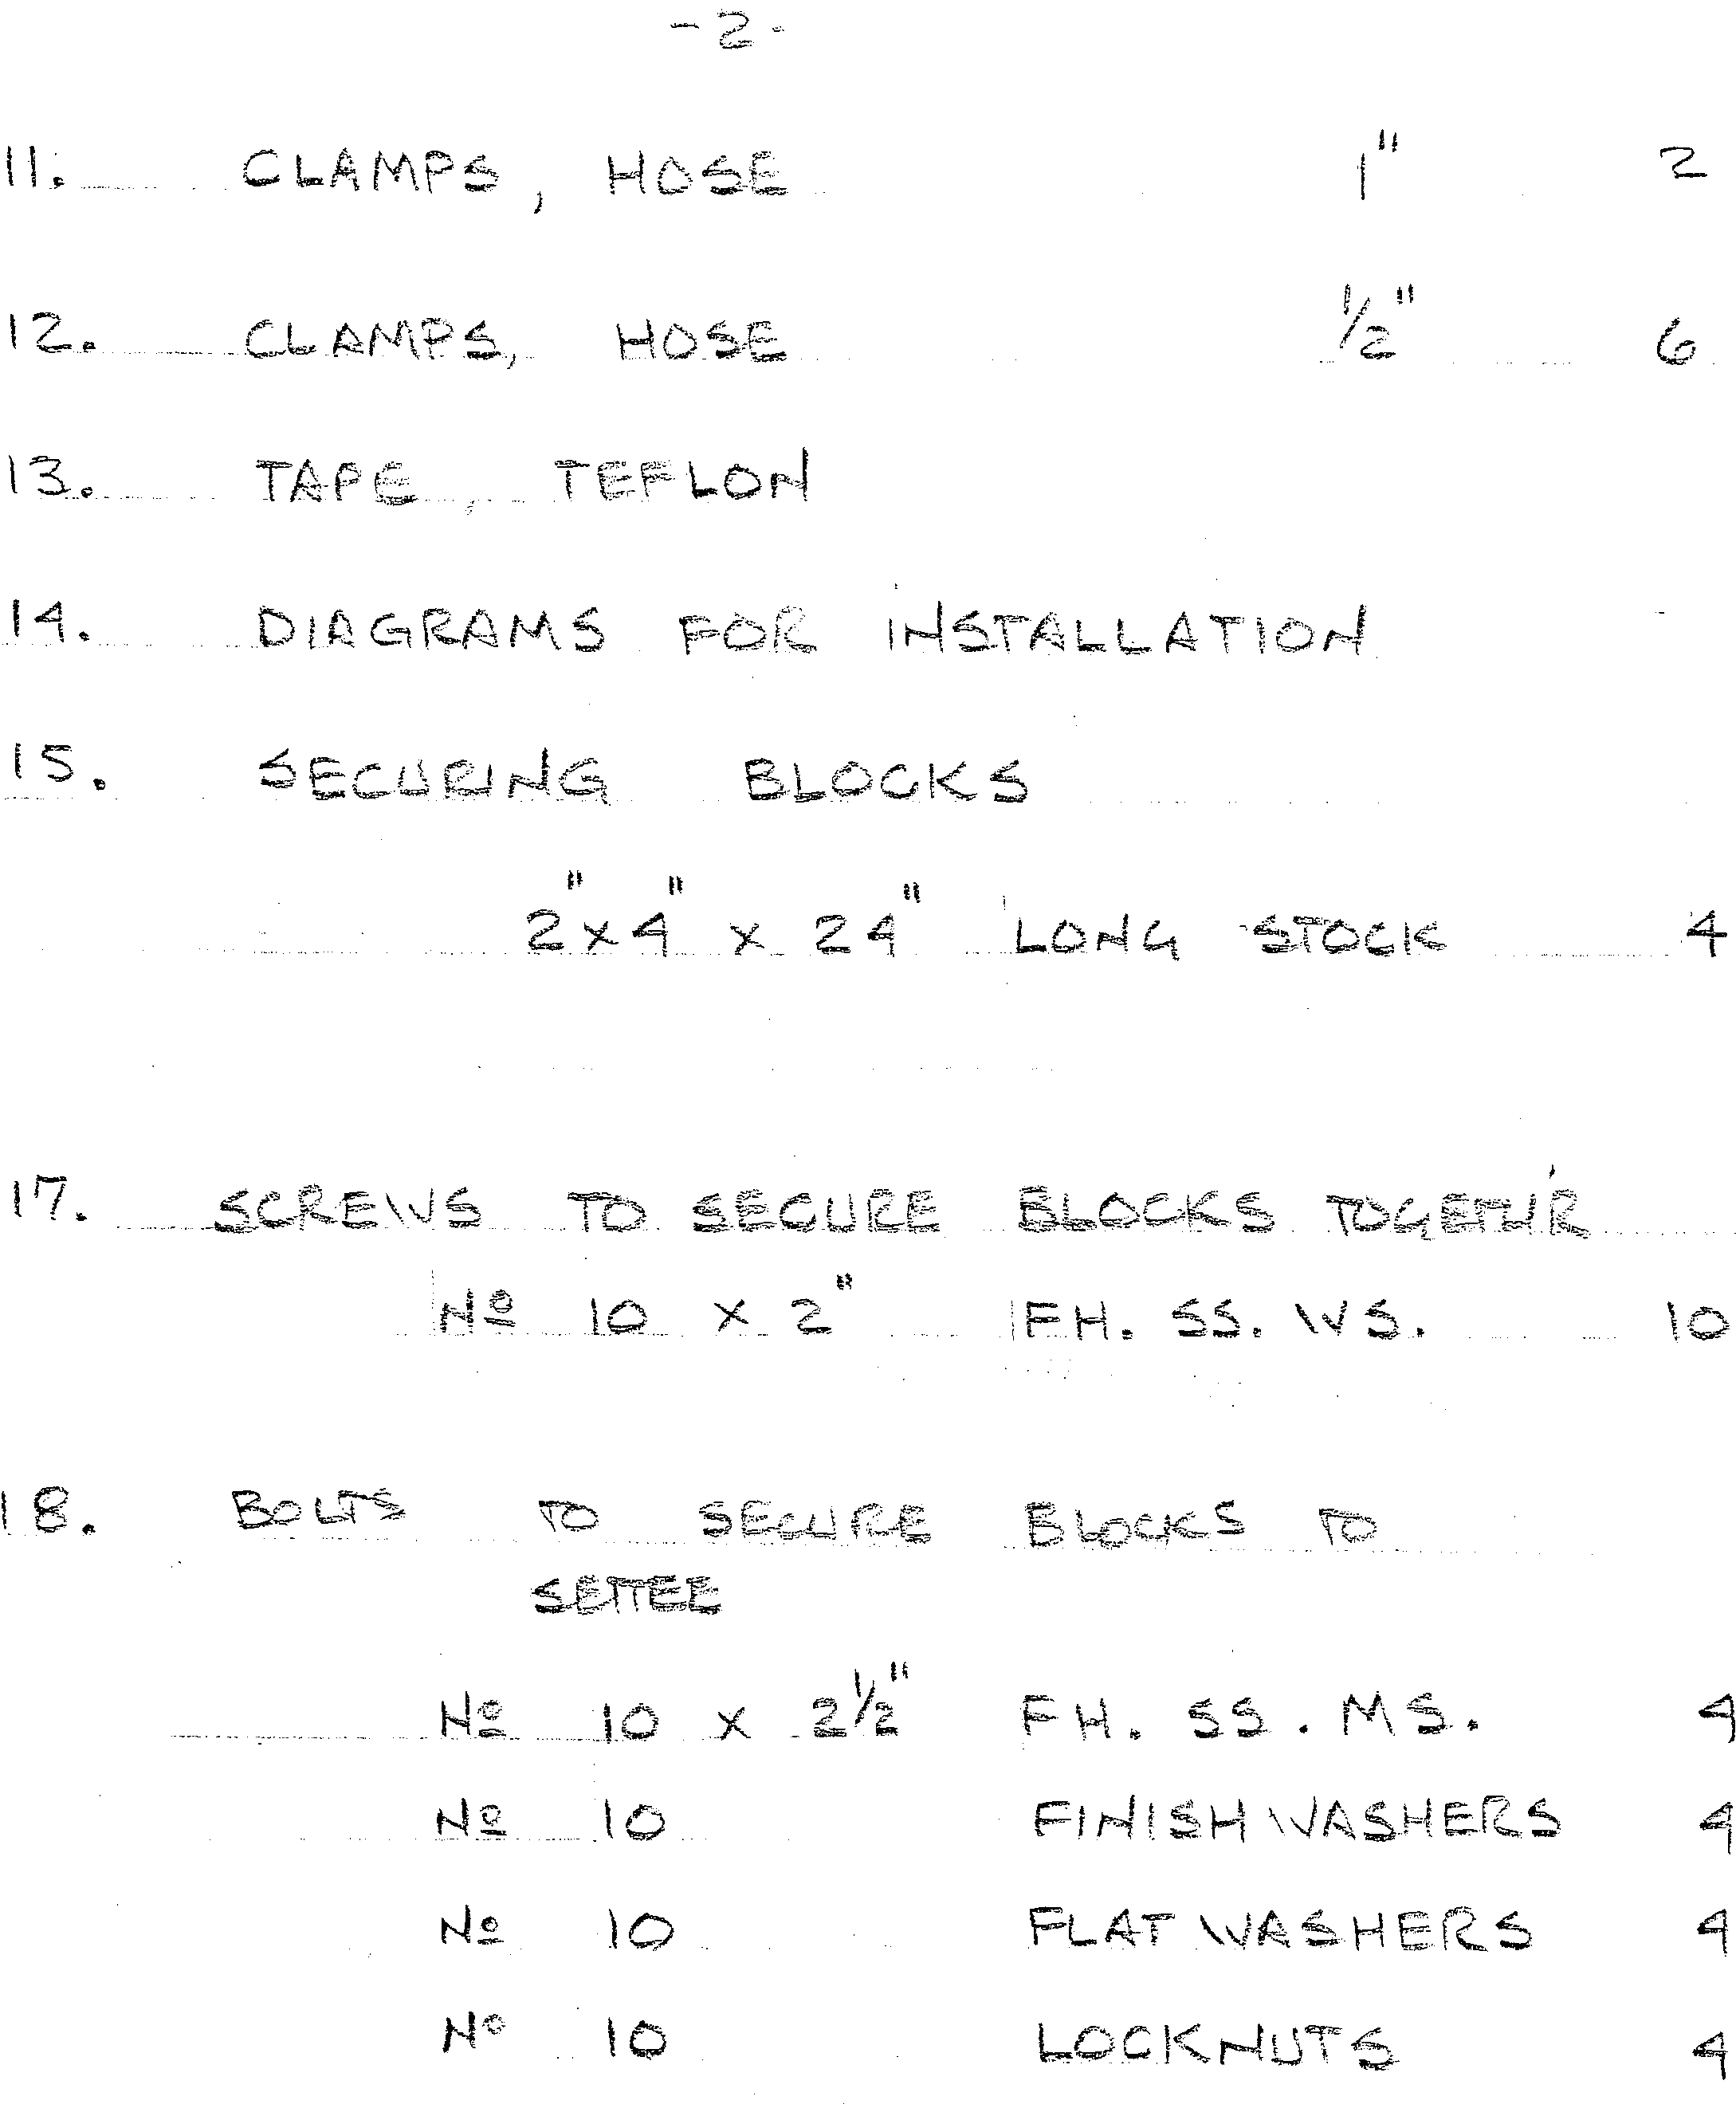 - 2 -
11. CLAMPS, HOSE 1" 2
12. CLAMPS, HOSE 1/2" 6
13. TAPE, TEFLON
14. DIAGRAMS FOR INSTALLATION
15. SECURING BLOCKS
2"x4" x 24" LONG STOCK 4
17. SCREWS TO SECURE BLOCKS TOGETHR
Nº 10 x 2" FH. SS. WS. 10
18. BOLTS TO SECURE BLOCKS TO
SETTEE
Nº 10 x 2 1/2" FH. SS. MS. 4
Nº 10 FINISH WASHERS 4
Nº 10 FLAT WASHERS 4
Nº 10 LOCKNUTS 4